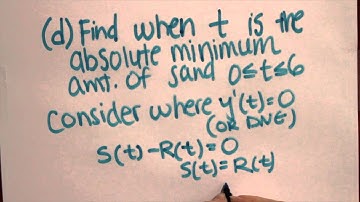 (d) Find when t is the
absolute minimum
amt. of sand 0≤t≤6
Consider where y'(t)=0
(OR DNE)
S(t)-R(t)=0
S(t)=R(t)